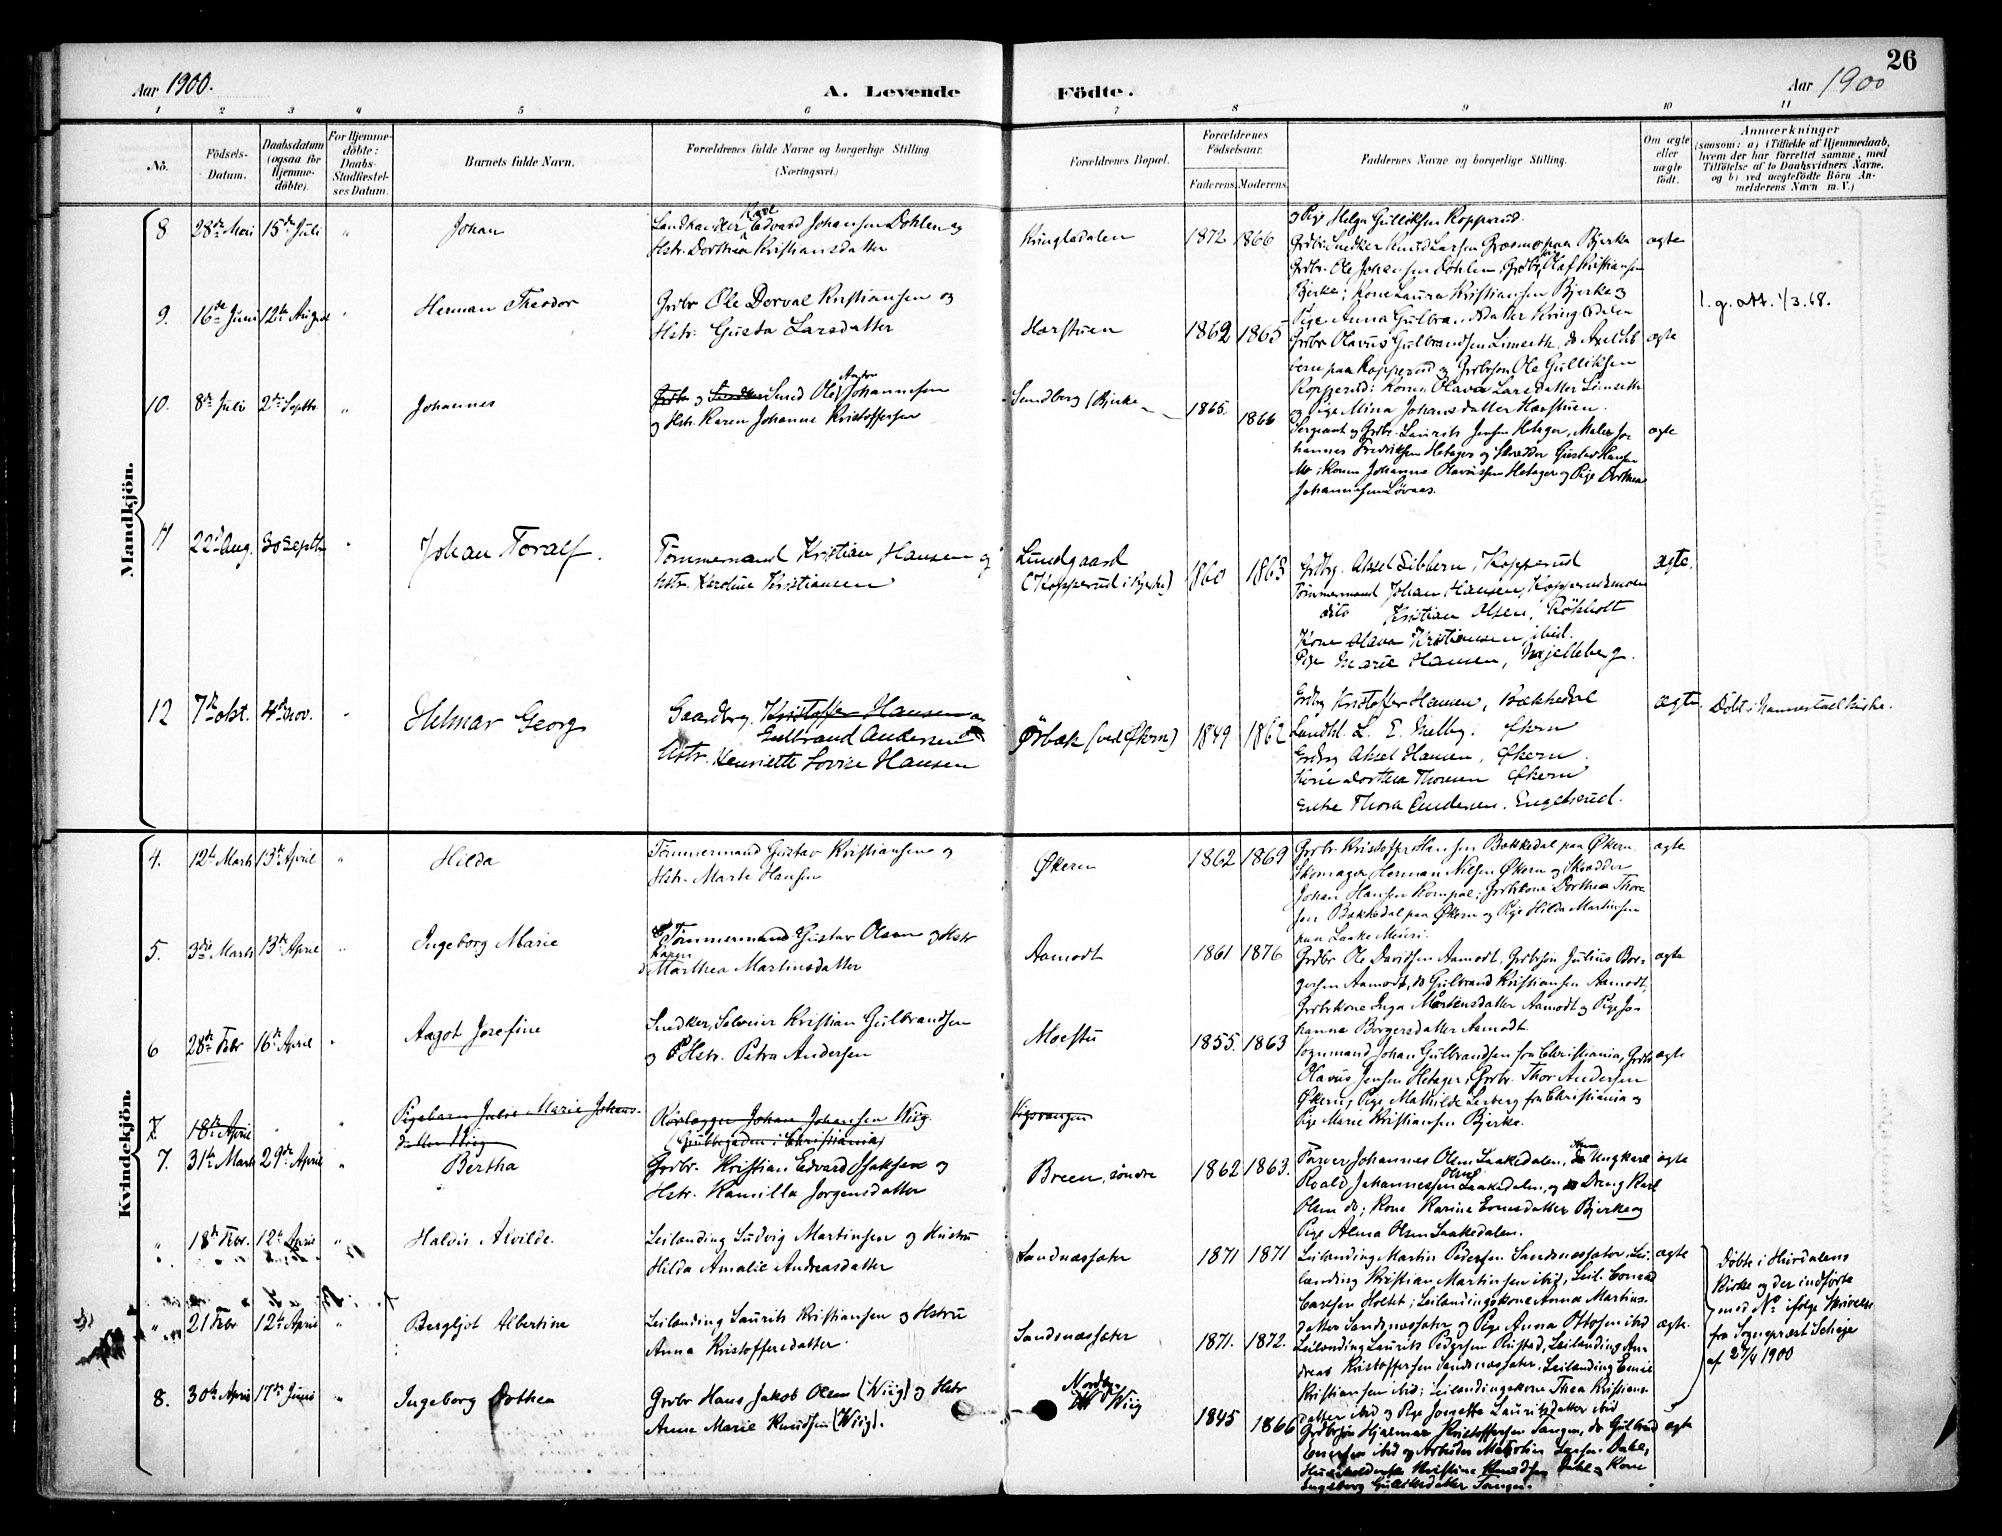 26
Aar 1900.
A. Levende
Födte.
Aar 1900
1 2 3 4 5 6 7 8 9 10 11
No.
Födsels-
Datum.
Daabsdatum
(ogsaa for
Hjemme-
döbte).
For Hjemme-
döbte:
Daabs-
Stadfæstel-
ses Datum.
Barnets fulde Navn.
Forældrenes fulde Navne og borgerlige Stilling.
(Næringsvei.)
Forældrenes Bopæl.
Forældrenes
Födselsaar.
Faderens. Moderens.
Faddernes Navne og borgerlige Stilling.
Om ægte
eller
uægte
födt.
Anmærkninger
(saasom: a) i Tilfælde af Hjemmedaab,
hvem der har forrettet samme, med
Tilföielse af to Daabsvidners Navne.
og b) ved uægtefödte Börn An-
melderens Navn m. V.)
Mandkjön.
8. 28de Mai 15de Juli " Johan
Landhandler Karl Edvard Johansen Dohlen og
Hstr. Dorthea Kristiansdatter
Kringledalen 1872 1866
og Pige Helga Gulliksen Kopperud.
Grdbr. Snedker Knud Larsen Græsmo paa Bjerke
Grdbr. Ole Johansen Dohlen, Grdbr. Olaf Kristiansen
Bjerke; Kone Laura Kristiansen Bjerke og
Pige Anna datter Kringledalen
ægte
9. 16de Juni 12te August " Herman Theodor
Grdbr Ole Dorval Kristiansen og
Hstr. Gusta Larsdatter
Harstuen 1862 1865
Grdbr Olavus Gulbrandsen Limseth, do Axel Sib-
bern paa Kopperud og Grdbrsøn Ole Gulliksen
Kopperud; Kone Olava Larsdatter Limseth
og Pige Mina Johansdatter Harstuen.
ægte
l. g. att. 1/3.68.
10. 8de Juli 2den Septbr. " Johannes
Grdbr og Snedker Smed Ole Anton Johannesen
og Hstr. Karen Johanne Kristoffersen
Sundberg (Bjerke 1865. 1866
Sergeant og Grdbr. Laurits Jensen Hetager, Maler Jo-
hannes Fredriksen Hetager og Skredder Gustav Hansen
Mo; Konen Johanne Olavussen Hetager og Pige Dorthea
Johannesen Løvaas.
ægte
11 22d Aug. 30 Septbr " Johan Toralf.
Tømmermand Kristian Hansen og
Hstr. Karoline Kristiansen
Lundgaard
(Kopperud i Bjerke)
1860 1863
Grdbg. Aksel Sibbern, Kopperud
Tømmermand Johan Hansen, Kopperudsmoen
dito Kristian Olsen, Røkholt
Kone Olava Kristiansen, ibid.
Pige Marie Hansen, Mjelleberg.
ægte.
12 7de okt. 4de nov. " Helmar Georg
Gaardbrg. Kristoffer Hansen og
Gulbrand Andersen
Hstr. Henriette Lovise Hansen
Ørbæk (ved Økern) 1849 1862
Grdbrg Kristoffer Hansen, Bækkedal
Landhl. L. E. Melby. Økern
Grdbrg Aksel Hansen, Økern.
Dorthea Thoresen Økern
Enke Thora Andersen. Engelsrud.
ægte.
Døbt i Nannestad kirke.
Kvindekjön.
4. 12te Marts 13de April " Hilda
Tømmermand Gustav Kristiansen og
Hstr. Marte Hansen
Økern 1862 1869
Grdbr. Kristoffer Hansen Bækkedal paa Økern,
Skomager Herman Nilsen Økern og Skrædder
Johan Hansen Rompal; Grdbrkone Dorthea Thore-
sen Bækkedal paa Økern og Pige Hilda Martinsen
paa Laake Meieri.
ægte
5. 3die Marts 13de April " Ingeborg Marie
Tømmermand Gustav Olsen og Hstr
Karen
Marthea Martinsdatter
Aamodt 1861 1876
Grdbr Ole Davidsen Aamodt, Grdbrsøn Julius Bor-
gersen Aamodt, do Gulbrand Kristiansen Aamodt,
Grdbrkone Inga Mortensdatter Aamodt og Pige Jo-
hanna Borgersdatter Aamodt
ægte
6 28de Febr 16de April " Aagot Josefine
Snedker, Selveier Kristian Gulbrandsen
og Hstr. Petra Andersen
Moestu 1855. 1863
Vognmand Johan Gulbrandsen fra Christiania, Grdbr
Olavus Jensen Hetager; Grdbr. Thor Andersen
Økern, Pige Mathilde Lerberg fra Christiania og
Pige Marie Kristiansen Bjerke.
ægte
7. 18de April " Pigebarn Julie Marie Johans-
datter Wiig
Rørlægger Johan Johansen Wiig
(Grubbegaden i Christiania)
Vigsvangen
7. 31te Marts 29de April " Bertha
Grdbr. Kristian Edvard Isaksen og
Hstr. Kamilla Jørgensdatter
Breen, søndre 1862 1863.
Farver Johannes Olsen Laakedalen, Ungkarl
Roald Johannessen Laakedalen, og Dreng Karl
Olsen do; Kone Karine Evensdatter Bjerke og
Pige Alma Olsen Laakedalen.
ægte
" 18de Febr. 12te April " Haldis Alvilde.
Leilænding Ludvig Martinsen og Hustru
Hilda Amalie Andreasdatter
Sandnæssæter 1871 1871
Leilænding Martin Pedersen Sandnæssæter, Lei-
lænding Kristian Martinsen ibid, Leil. Conrad
Carlsen Holtet; Leilændingskone Anna Martins-
datter Sandnæssæter og Pige Anna Ottosen ibid
ægte
Døbte i Hurdalens
Kirke og der indførte
med No ifølge Skrivelse
fra Sogneprest Scheje
af 27/4 1900
" 21 Febr 12te April " Bergljot Albertine
Leilænding Laurits Kristiansen og Hstru
Anna Kristoffersdatter.
Sandnæssæter 1871. 1872.
Leilænding Laurits Pedersen Rustad, Leilænding An-
dreas Kristoffersen Sandnæssæter, Leilænding Emil
Kristiansen ibid; Leilændingskone Thea Kristians-
datter ibid og Pige Josette Lauritsdatter ibid
ægte.
8. 30te April 17de Juni " Ingeborg Dorthea
Grdbr Hans Jakob Olsen (Wiig) og Hstr
Anne Marie Knudsen (Wiig).
Nordre
Wiig
1845 1866
Grdbrsøn Hjalmar Kristoffersen Tangen, do Gulbrand
Enersen ibid og Arbeider Martin Larsen Dahl;
Husholderske Kristine Knudsen Dahl og Kone
Ingeborg Gulliksdatter Tangen.
ægte